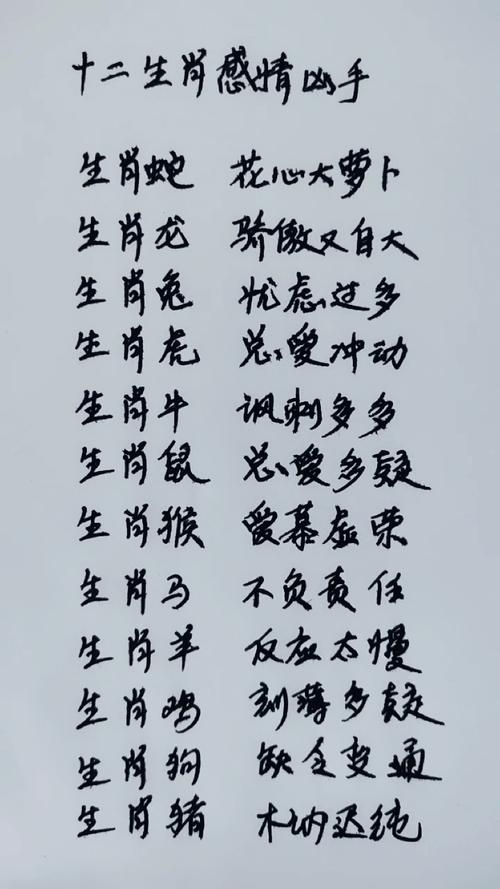 十二生肖感情凶手
生肖蛇 花心大萝卜
生肖龙 骄傲又自大
生肖兔 忧虑过多
生肖虎 总爱冲动
生肖牛 讽刺多多
生肖鼠 总爱多疑
生肖猴 爱慕虚荣
生肖马 不负责任
生肖羊 反应太慢
生肖鸡 刻薄多疑
生肖狗 缺乏变通
生肖猪 木讷迟钝